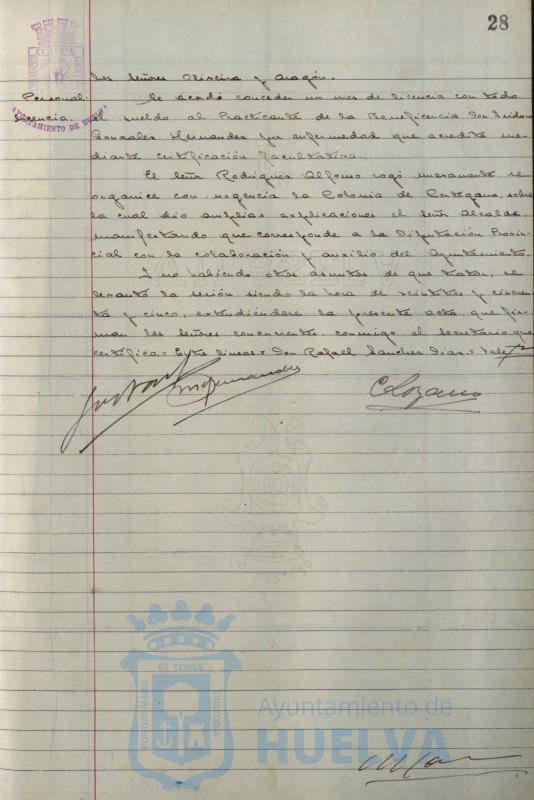 28
AYUNTAMIENTO DE HUELVA
los señores Oliveira y Aragón.
Personal:
licencia.
Se acordó conceder un mes de licencia con todo
el sueldo al Practicante de la Beneficencia Don Isidoro
Gonzalez Hernandez por enfermedad que acredita me-
diante certificación facultativa.
El señor Rodriguez Alfonso rogó nuevamente se
organice con urgencia la Colonia de Cortegana, sobre
la cual dio amplias explicaciones el señor Alcalde,
manifestando que corresponde a la Diputación Provin-
cial con la colaboración y auxilio del Ayuntamiento.
Y no habiendo otros asuntos de que tratar, se
levantó la sesión siendo la hora de veintitres y cincuen-
ta y cinco, extendiéndose la presente acta que fir-
man los señores concurrentes conmigo el secretario que
certifico.= Entre lineas.= Don Rafael Sanchez Diaz.= Vale
C Lozano
ET TERRÆ
PORTUS MARIS
CUSTODIA
Ayuntamiento de
HUELVA